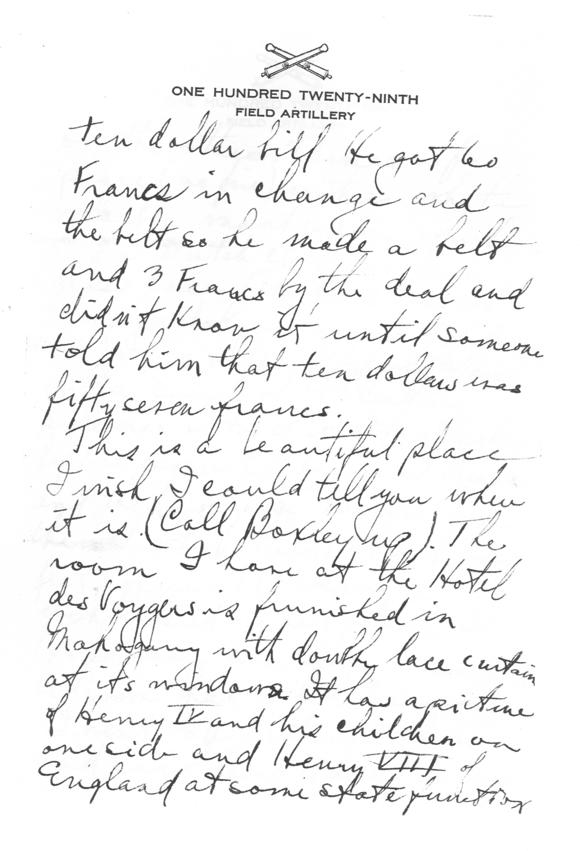 ONE HUNDRED TWENTY-NINTH
FIELD ARTILLERY
ten dollar bill. He got 60
Francs in change and
the belt so he made a belt
and 3 Francs by the deal and
didn't know it until someone
told him that ten dollars was
fifty seven francs.
This is a beautiful place
I wish I could tell you where
it is. (Call Boxley up). The
room I have at the Hotel
des Voygers is furnished in
Mahogany with double lace curtain
at its windows. It has a picture
of Henry IV and his children on
one side and Henry VIII of
England at some state function